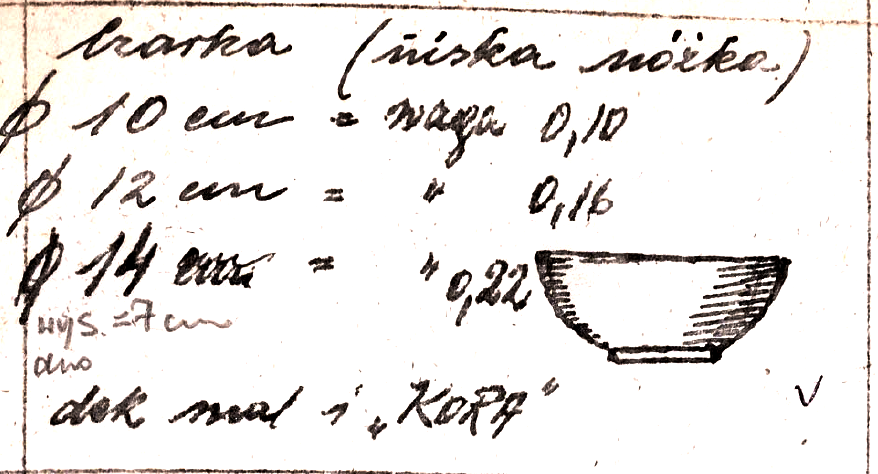 czarka (niska nóżka)
ϕ 10 cm = waga 0,10
ϕ 12 cm = " 0,16
ϕ 14 cm = " 0,22
wys. = 7 cm
dno
dek mal i „KORA"